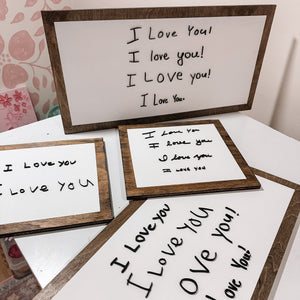 I Love You!
I love you!
I Love you!
I Love You.
I Love you
I love you
I love you
I Love you
I Love you
I Love you
I Love you
I Love you
Love you!
Love You!